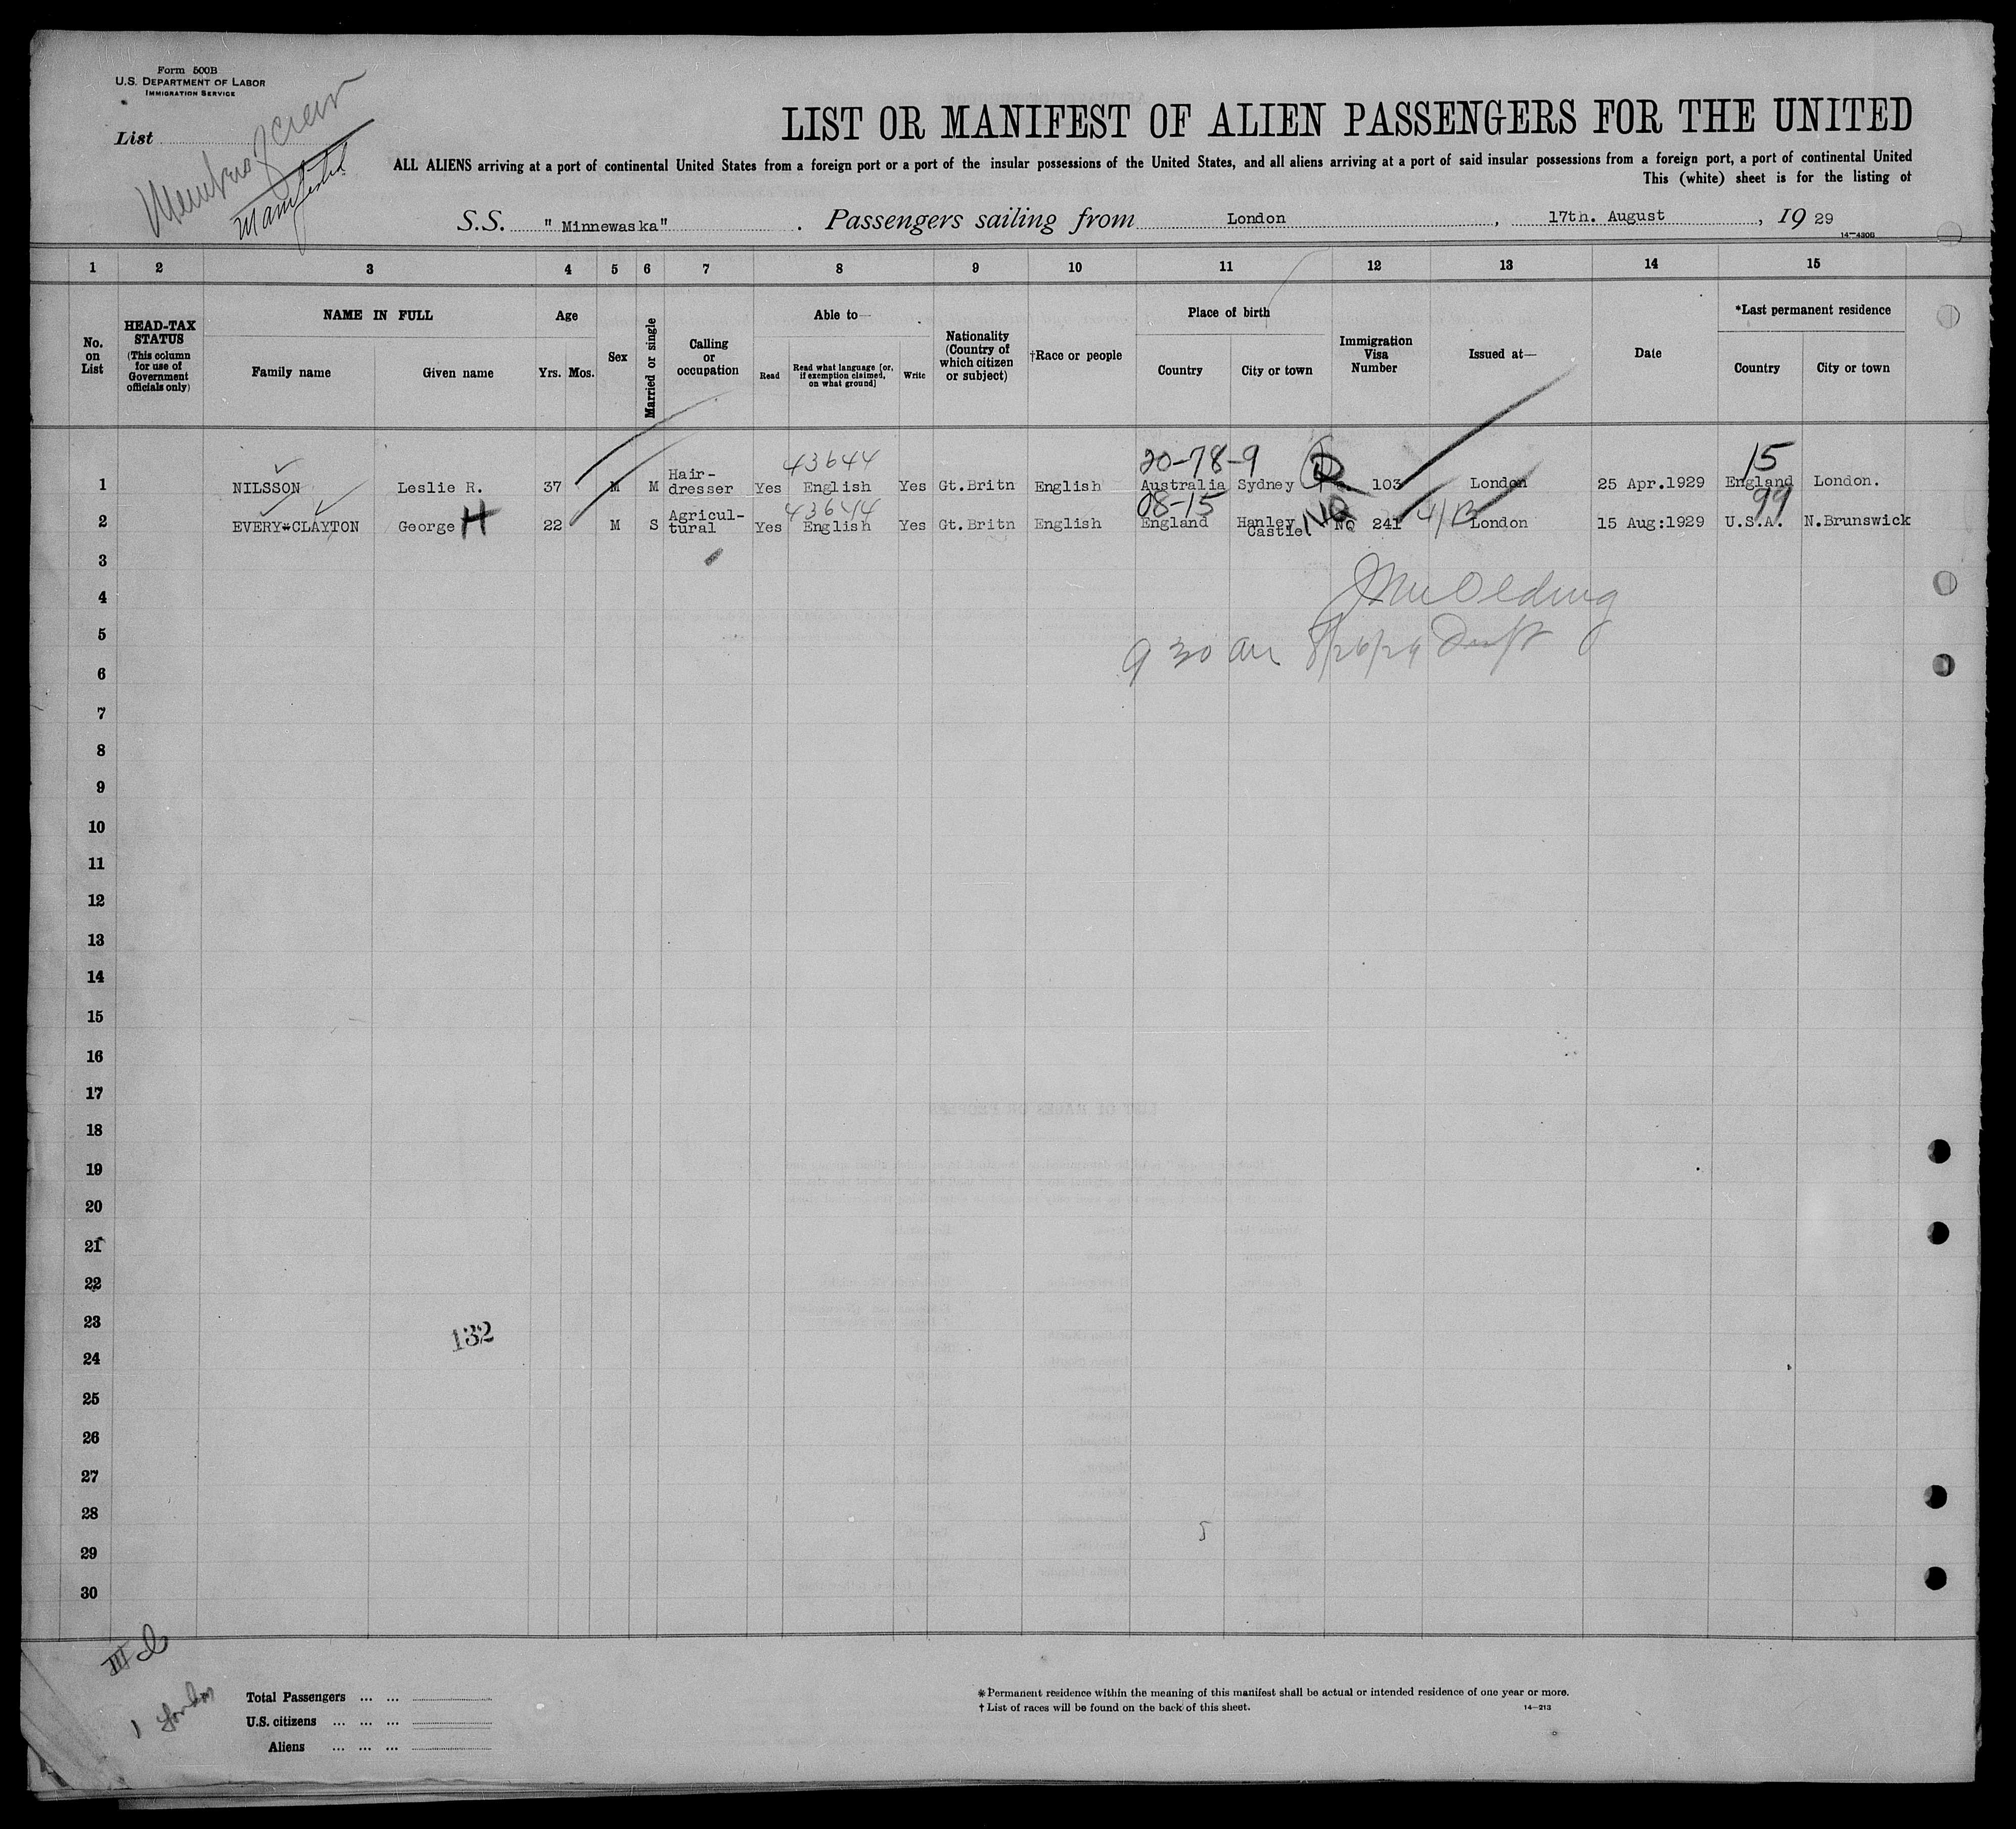 Form 500B
U.S. DEPARTMENT OF LABOR
IMMIGRATION SERVICE
List
Members of crew
Manifested
LIST OR MANIFEST OF ALIEN PASSENGERS FOR THE UNITED
ALL ALIENS arriving at a port of continental United States from a foreign port or a port of the insular possessions of the United States, and all aliens arriving at a port of said insular possessions from a foreign port, a port of continental United
This (white) sheet is for the listing of
S.S. " Minnewaska" . Passengers sailing from London , 17th. August , 19 29
14—4306
1 2 3 4 5 6 7 8 9 10 11 12 13 14 15
No. on List
HEAD-TAX STATUS
(This column for use of Government officials only)
NAME IN FULL
Family name Given name
Age
Yrs. Mos.
Sex
Married or single
Calling or occupation
Able to—
Read
Read what language [or, if exemption claimed, on what ground]
Write
Nationality (Country of which citizen or subject)
†Race or people
Place of birth
Country City or town
Immigration Visa Number
Issued at—
Date
*Last permanent residence
Country City or town
43644 20-78-9 15
1 NILSSON Leslie R. 37 M M Hair-dresser Yes English Yes Gt.Britn English Australia Sydney 103 London 25 Apr.1929 England London.
43644 08-15 NQ 4/B 99
2 EVERY*CLAYTON George H 22 M S Agricul-tural Yes English Yes Gt.Britn English England Hanley Castle NQ 241 London 15 Aug:1929 U.S.A. N.Brunswick
3
4
5
9 30 am 8/26/29
6
7
8
9
10
11
12
13
14
15
16
17
18
19
20
21
22
23
132
24
25
26
27
28
29
30
III
1 London
Total Passengers ... ...
U.S. citizens ... ... ...
Aliens ... ... ...
* Permanent residence within the meaning of this manifest shall be actual or intended residence of one year or more.
† List of races will be found on the back of this sheet.
14—213